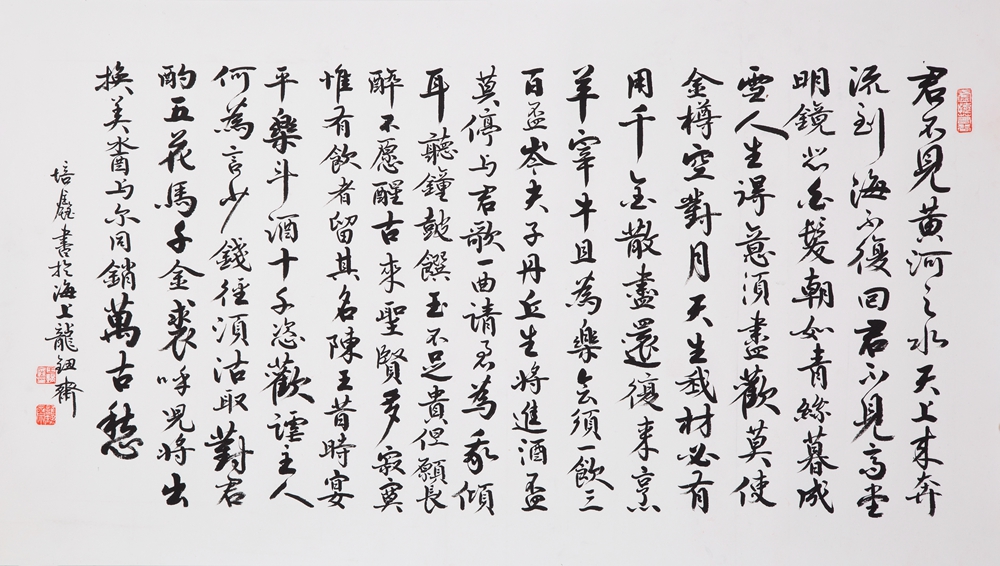 君不見黄河之水天上来奔
流到海不復回君不見高堂
明鏡悲白髮朝如青絲暮成
雪人生得意須盡歡莫使
金樽空對月天生我材必有
用千金散盡還復来烹
羊宰牛且為樂会須一飲三
百盃岑夫子丹丘生將進酒盃
莫停与君歌一曲請君為我傾
耳聽鐘鼓饌玉不足貴但願長
醉不愿醒古来聖賢多寂寞
惟有飲者留其名陳王昔時宴
平樂斗酒十千恣歡謔主人
何為言少錢径須沽取對君
酌五花馬千金裘呼児將出
換美酒与尔同銷萬古愁
培書於海上龍鈕齋